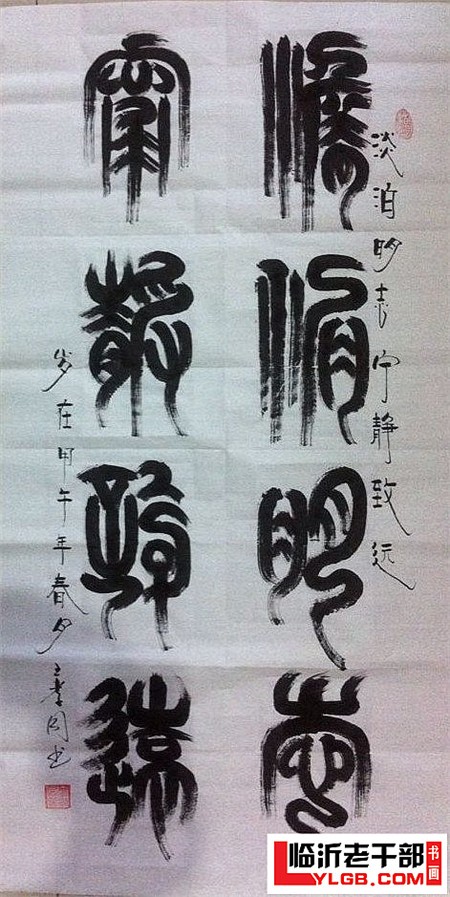 淡泊明志宁静致远
澹泊明志
寧靜致遠
岁在甲午年春夕王孝书
临沂老干部书画
LYLGB.COM